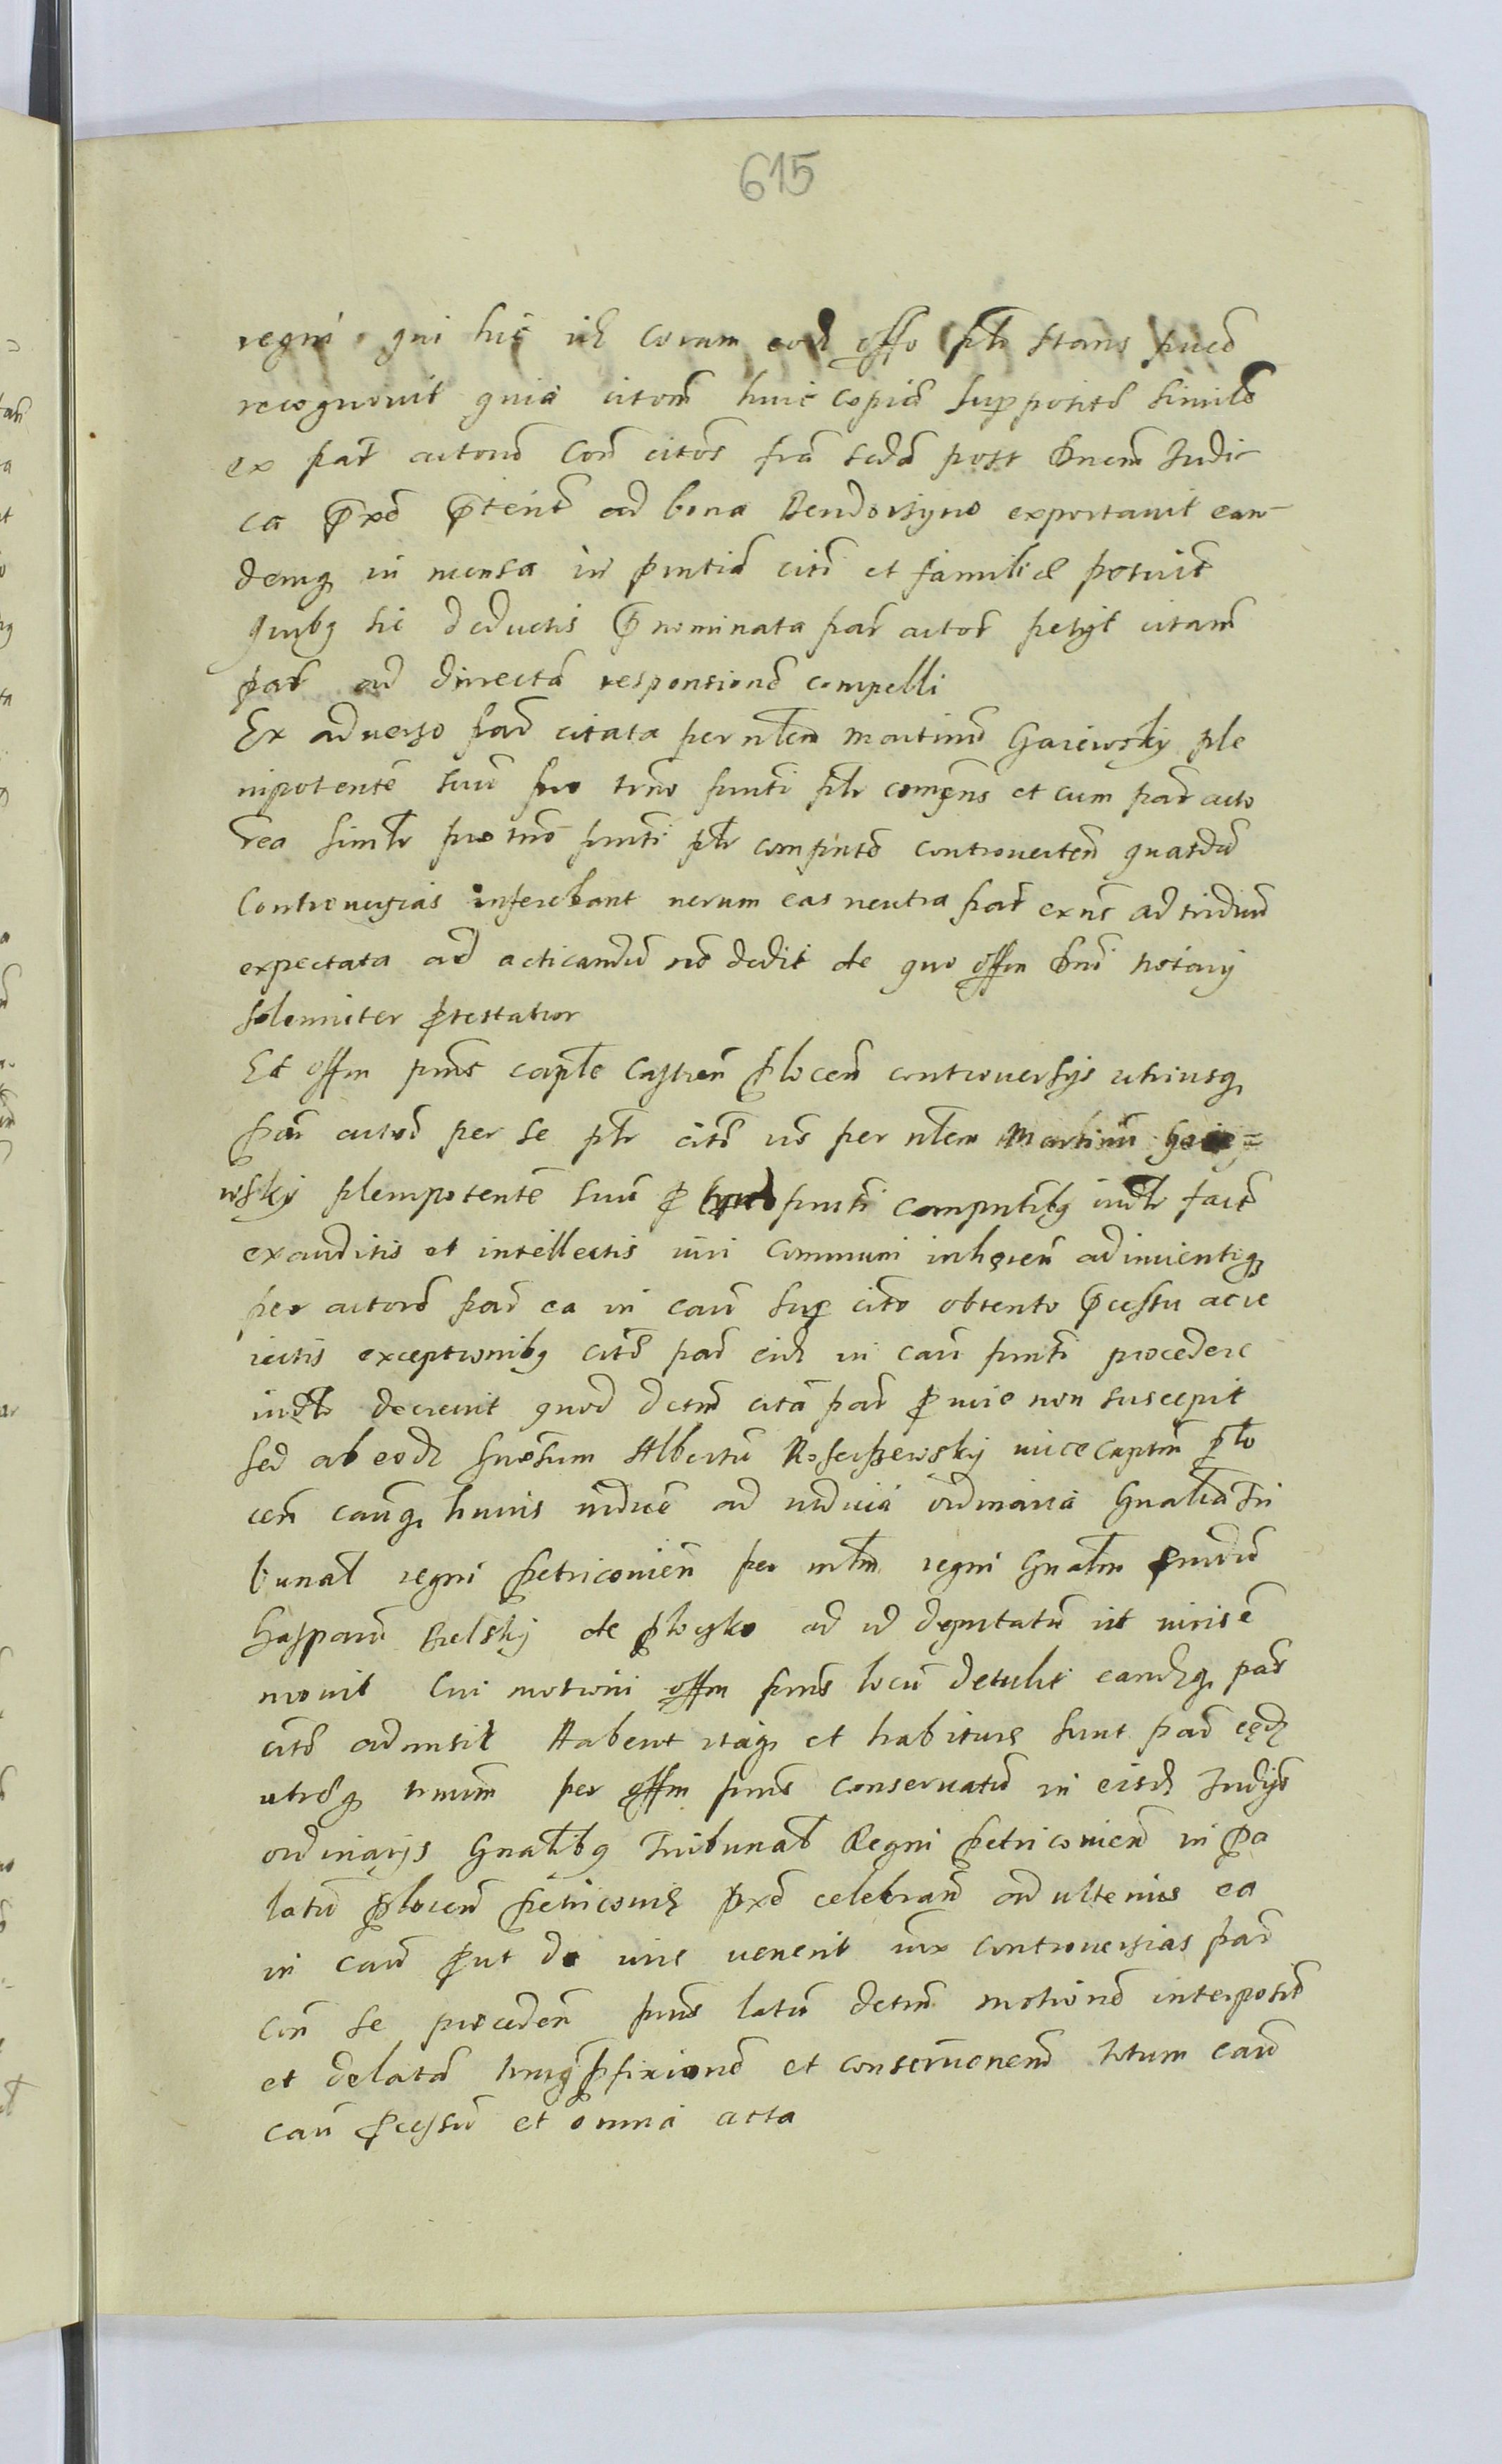 615
regni qui hic id coram eod offo ptr stans pued
recognouit quia citom huic copia suppositã similẽ
ex part actoris con citos fra scda post Dnicm Judi
ca pxe pterit ad bona Bendorzyno exportauit ean-
demq in mensa in pntia citi et familiæ posuit
Quibq sic deductis pnominata par actor petyt citam
part ad directã responsionẽ compelli
Ex aduerso par citata per nlem Martinũ Gaiewsky ple
nipotentẽ suũ pro tmno pnti ptr comens et cum par acto
rea simlr pro tmo pnti ptr compntẽ controuertem quasdã
Controuersias inferebant uerum eas neutra par exns ad triduũ
expectata ad acticandũ nõ dedit de quo offm pnti notarij
solemniter ptestatur
Et offm pns capte Castren Plocen controuersijs utriusq
par actoreã per se ptr citã uõ per nlem Martinũ Gaie=
wsky plenipotentẽ suũ p tmo pnti compntibq iudlr fact
exauditis et intellectis iuri communi inheren adinuentisq
per actorẽ par ea in cau sup cito obtento pcessu ac re
iectis exceptionibq citẽ par eid in cau pnti procedere
iudlr decreuit quod dctm citã par p iure non suscepit
sed ab eodz gnosum Albertũ Koscissewsky uice captm Plo
cen cauq huius iudicẽ ad iudicia ordinaria Gnalia Tri
bunal regni Petricouien per mlm regni Gnalm puidũ
Gasparũ Sielsky de Plocko ad id deputatũ ut iuris ẽ
mouit Cui motioni offm pns locũ detulit eandzq par
citã admisit Habent itaq et habiturę sunt par eędz
utręq tmum per offm pns conseruatũ in eisdz Judijs
ordinarijs Gnalibq Tribunal Regni Petricouien in Pa
latu Plocen Petricouię pxe celebran ad ulterius ea
in cau put de iure uenerit iux controuersias par
con se preceden pns latũ dctm motionẽ interpositã
et delatã tmiq pfixionẽ et conseruonem totum eau
cau pcessũ et omnia acta